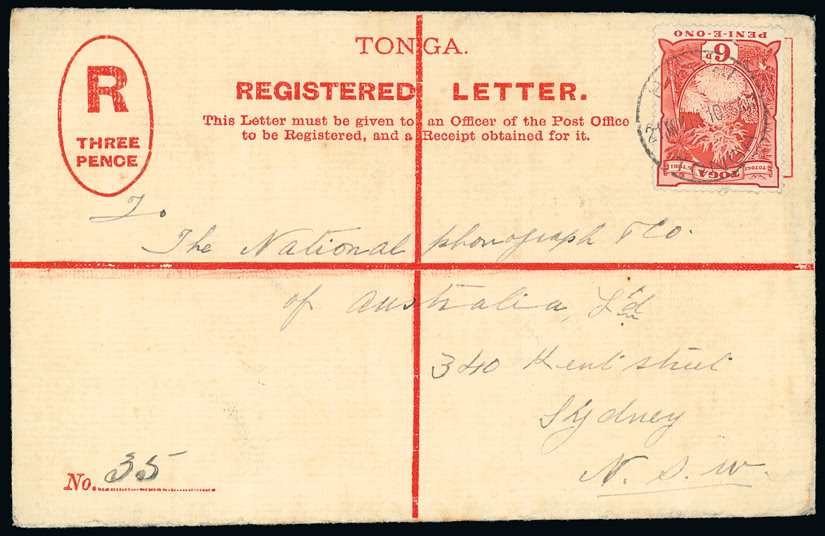 TONGA.
REGISTERED LETTER.
This Letter must be given to an Officer of the Post Office
to be Registered, and a Receipt obtained for it.
R
THREE
PENCE
PENI-E-ONO
6D
TOGA
To
The National Phonograph & Co.
of Australia, Ltd
340 Kent street
Sydney
N. S. W.
No. 35